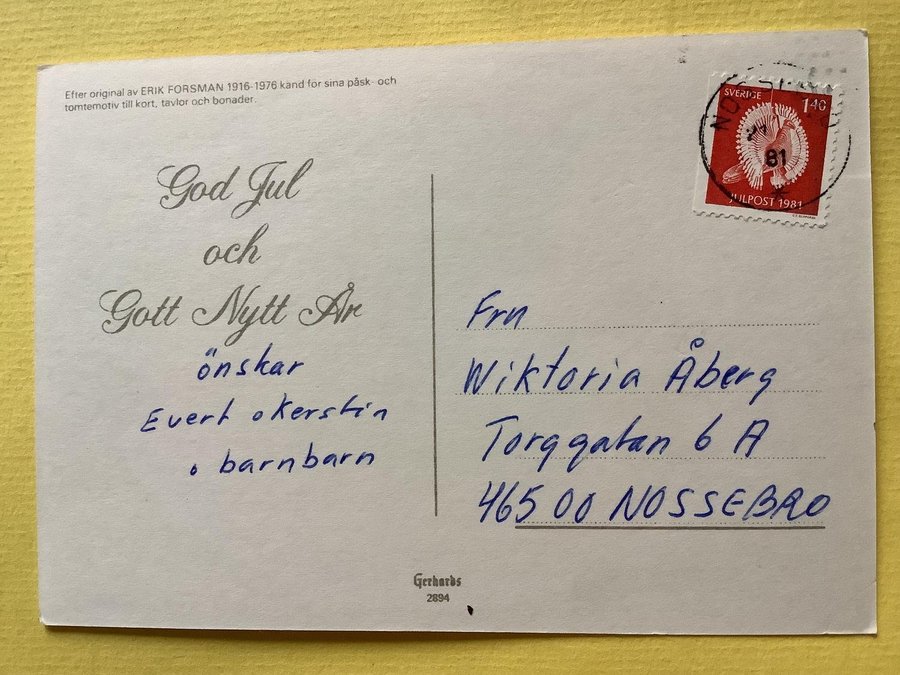 Efter original av ERIK FORSMAN 1916-1976 känd för sina påsk- och
tomtemotiv till kort, tavlor och bonader.
God Jul
och
Gott Nytt År
önskar
Evert o Kerstin
o barnbarn
SVERIGE 1.40
81
JULPOST 1981
Frn
Wiktoria Åberg
Torggatan 6 A
465 00 NOSSEBRO
Gerhards
2894